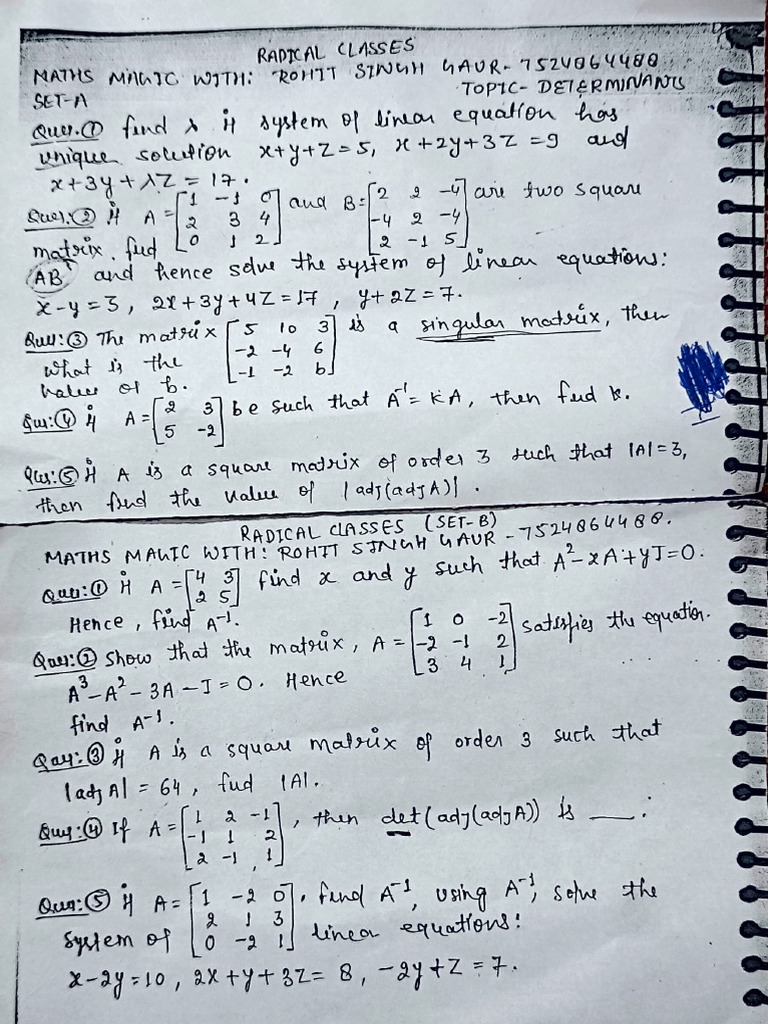 RADICAL CLASSES
MATHS MAGIC WITH: ROHIT SINGH GAUR - 7524864488
SET-A TOPIC- DETERMINANTS
Ques.① find λ if system of linear equation has
unique solution x+y+z=5, x+2y+3z=9 and
x+3y+λz=17.
Ques.② if A=[1 -1 0; 2 3 4; 0 1 2] and B=[2 2 -4; -4 2 -4; 2 -1 5] are two square
matrix. find
AB and hence solve the system of linear equations:
x-y=3, 2x+3y+4z=17, y+2z=7.
Ques:③ The matrix [5 10 3; -2 -4 6; -1 -2 b] is a singular matrix, then
what is the
value of b.
Qus:④ if A=[2 3; 5 -2] be such that A⁻¹=KA, then find k.
Ques:⑤ if A is a square matrix of order 3 such that |A|=3,
then find the value of |adj(adjA)|.
RADICAL CLASSES (SET-B)
MATHS MAGIC WITH: ROHIT SINGH GAUR - 7524864488.
Ques:① if A=[4 3; 2 5] find x and y such that A²-xA+yI=0.
Hence, find A⁻¹.
Ques:② Show that the matrix, A=[1 0 -2; -2 -1 2; 3 4 1] satisfies the equation.
A³-A²-3A-I=0. Hence
find A⁻¹.
Ques:③ if A is a square matrix of order 3 such that
|adjA|=64, find |A|.
Ques:④ If A=[1 2 -1; -1 1 2; 2 -1 1], then det(adj(adjA)) is ___.
Ques:⑤ if A=[1 -2 0; 2 1 3; 0 -2 1]. find A⁻¹, using A⁻¹, solve the
system of linear equations:
x-2y=10, 2x+y+3z=8, -2y+z=7.